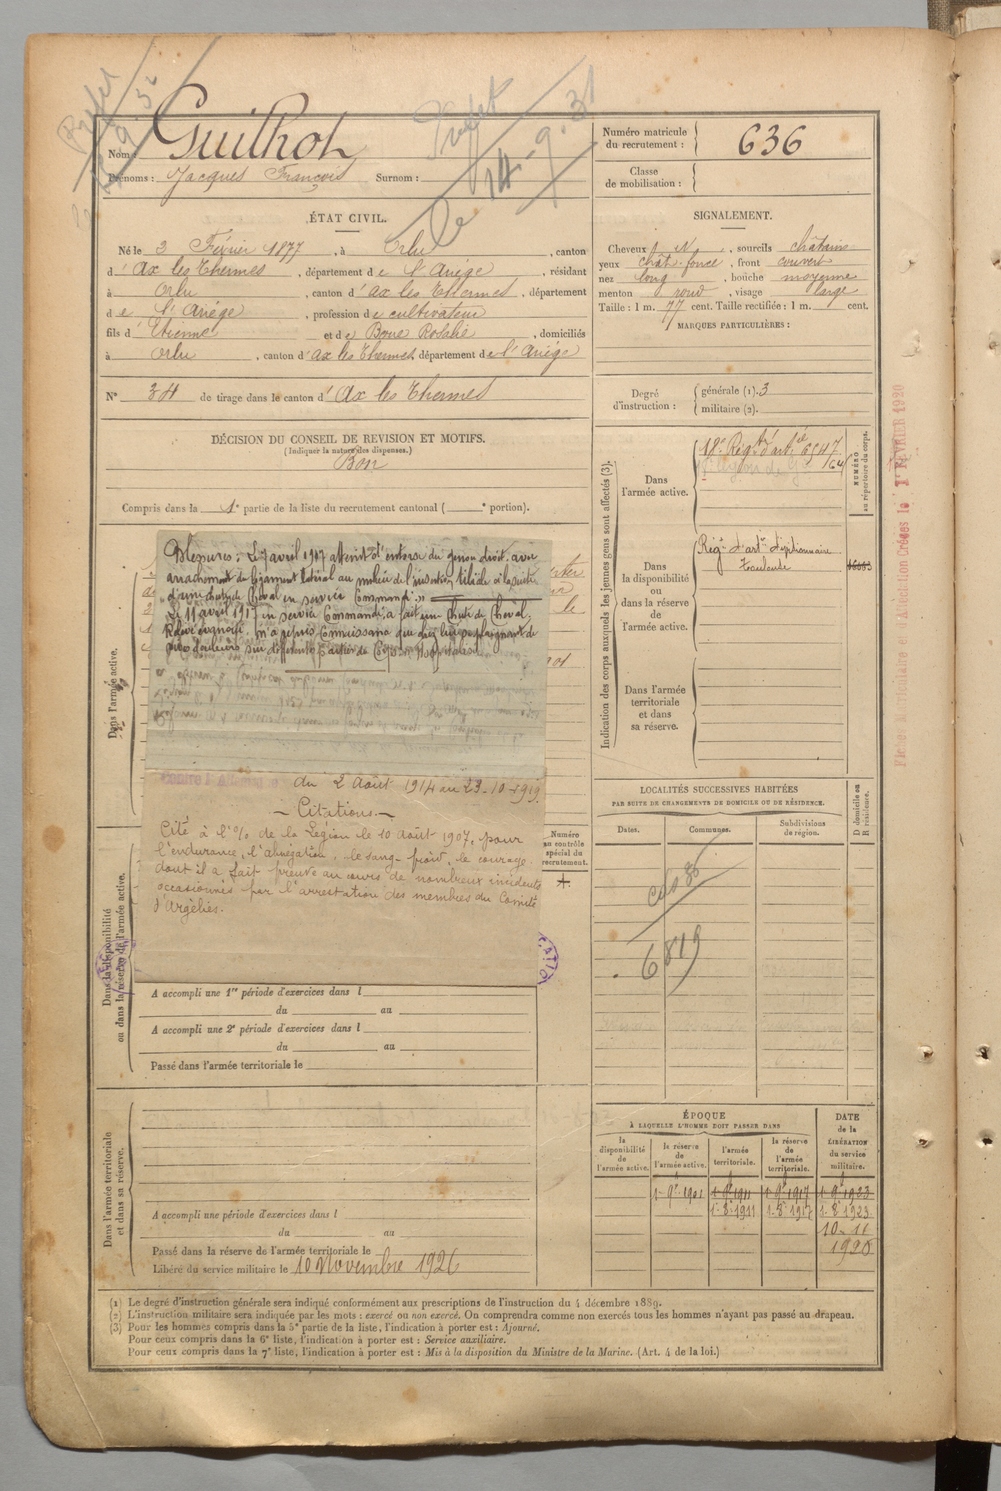 Préfet
14-9.31
Nom : Guilhot
Prénoms : Jacques François Surnom :
Numéro matricule du recrutement : 636
Classe de mobilisation :
ÉTAT CIVIL.
Né le 2 Février 1877, à Orlu, canton
d'Ax les Thermes, département de l'Ariège, résidant
à Orlu, canton d'Ax les Thermes, département
de l'Ariège, profession de cultivateur
fils d'Etienne et de Boue Rosalie, domiciliés
à Orlu, canton d'Ax les Thermes département de l'Ariège
N° 34 de tirage dans le canton d'Ax les Thermes
SIGNALEMENT.
Cheveux N, sourcils châtains
yeux chât. foncé, front couvert
nez long, bouche moyenne
menton rond, visage large
Taille : 1 m. 77 cent. Taille rectifiée : 1 m. cent.
MARQUES PARTICULIÈRES :
Degré d'instruction : générale (1). 3
militaire (2).
DÉCISION DU CONSEIL DE REVISION ET MOTIFS.
(Indiquer la nature des dispenses.)
Bon
Compris dans la 1e partie de la liste du recrutement cantonal ( e portion).
Indication des corps auxquels les jeunes gens sont affectés (3).
NUMÉRO au répertoire du corps.
Dans l'armée active.
18e Régt d'artie 6547
Dans la disponibilité ou dans la réserve de l'armée active.
Toulouse
Dans l'armée territoriale et dans sa réserve.
Fiches Matriculaire et d'Attestation Créées le 1er FÉVRIER 1920
Dans l'armée active.
Blessures : Le 7 avril 1907 atteint d'entorse du genou droit avec
arrachement du ligament latéral au milieu de l'insertion tibiale à la suite
d'une chute de cheval en service Commandé."
en service Commandé, a fait une Chute de Cheval.
du 2 Août 1914 au 23-10-1919.
- Citations -
Cité à l'% de la Légion le 10 Août 1907, pour
l'endurance, l'abnégation, le sang-froid, le courage
dont il a fait preuve au cours de nombreux incidents
occasionnés par l'arrestation des membres du Comité
d'Argeliès.
Numéro au contrôle spécial du recrutement.
Dans la disponibilité ou dans la réserve de l'armée active.
A accompli une 1re période d'exercices dans l
du au
A accompli une 2e période d'exercices dans l
du au
Passé dans l'armée territoriale le
LOCALITÉS SUCCESSIVES HABITÉES
PAR SUITE DE CHANGEMENTS DE DOMICILE OU DE RÉSIDENCE.
Dates. Communes. Subdivisions de région. D domicile ou R résidence.
6819
Dans l'armée territoriale et dans sa réserve.
A accompli une période d'exercices dans l
du au
Passé dans la réserve de l'armée territoriale le
Libéré du service militaire le 10 Novembre 1926
ÉPOQUE
À LAQUELLE L'HOMME DOIT PASSER DANS
la disponibilité de l'armée active. la réserve de l'armée active. l'armée territoriale. la réserve de l'armée territoriale.
DATE de la LIBÉRATION du service militaire.
1-9e 1901 1-9e 1911 1-9e 1917 1-9e 1923
1-8e 1911 1-8e 1917 1-8e 1923
10-11
1926
(1) Le degré d'instruction générale sera indiqué conformément aux prescriptions de l'instruction du 4 décembre 1889.
(2) L'instruction militaire sera indiquée par les mots : exercé ou non exercé. On comprendra comme non exercés tous les hommes n'ayant pas passé au drapeau.
(3) Pour les hommes compris dans la 5e partie de la liste, l'indication à porter est : Ajourné.
Pour ceux compris dans la 6e liste, l'indication à porter est : Service auxiliaire.
Pour ceux compris dans la 7e liste, l'indication à porter est : Mis à la disposition du Ministre de la Marine. (Art. 4 de la loi.)